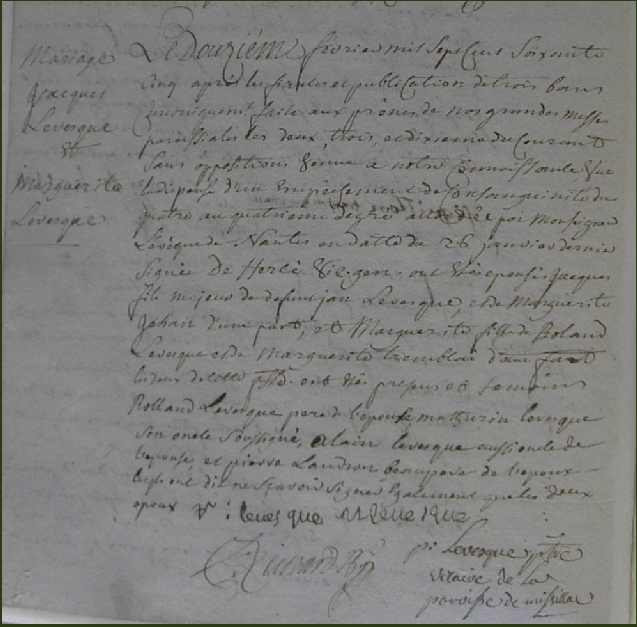 Mariage
Jacques
Levesque
et
Marguerite
Levesque
Le Douziéme février mil sept Cent Soixante
Cinq après les fiançailles et publication de trois bans
faite aux prônes de nos grandes messes
paroissiales les deux, trois, et dixieme du Courant
Sans oppositions venue à notre Connoissance
dispense d'un Empêchement de Consanguinité du
quatre au quatrieme degré accordée par Monseigneur
L'évêque de Nantes en datte du 26 janvier dernier
Signée De Hercé Vic. gen. ont été épousés Jacques
fils majeur de defunt jan Levesque, et de Marguerite
Jehan d'une part, et Marguerite fille de Roland
Levesque et de Marguerite tremblai d'autre part
les deux de cette psse. ont été presens et temoins
Rolland Levesque pere de l'epouse, mathurin levesque
Son oncle Soussigné, alain levesque aussi oncle de
l'epouse, et pierre Landron beaupere de l'epoux
lesquels ont dit ne Scavoir Signer Egalement que les deux
epoux : levesque M leveque
pi Levesque ptre
vicaire de la
paroisse de missillac